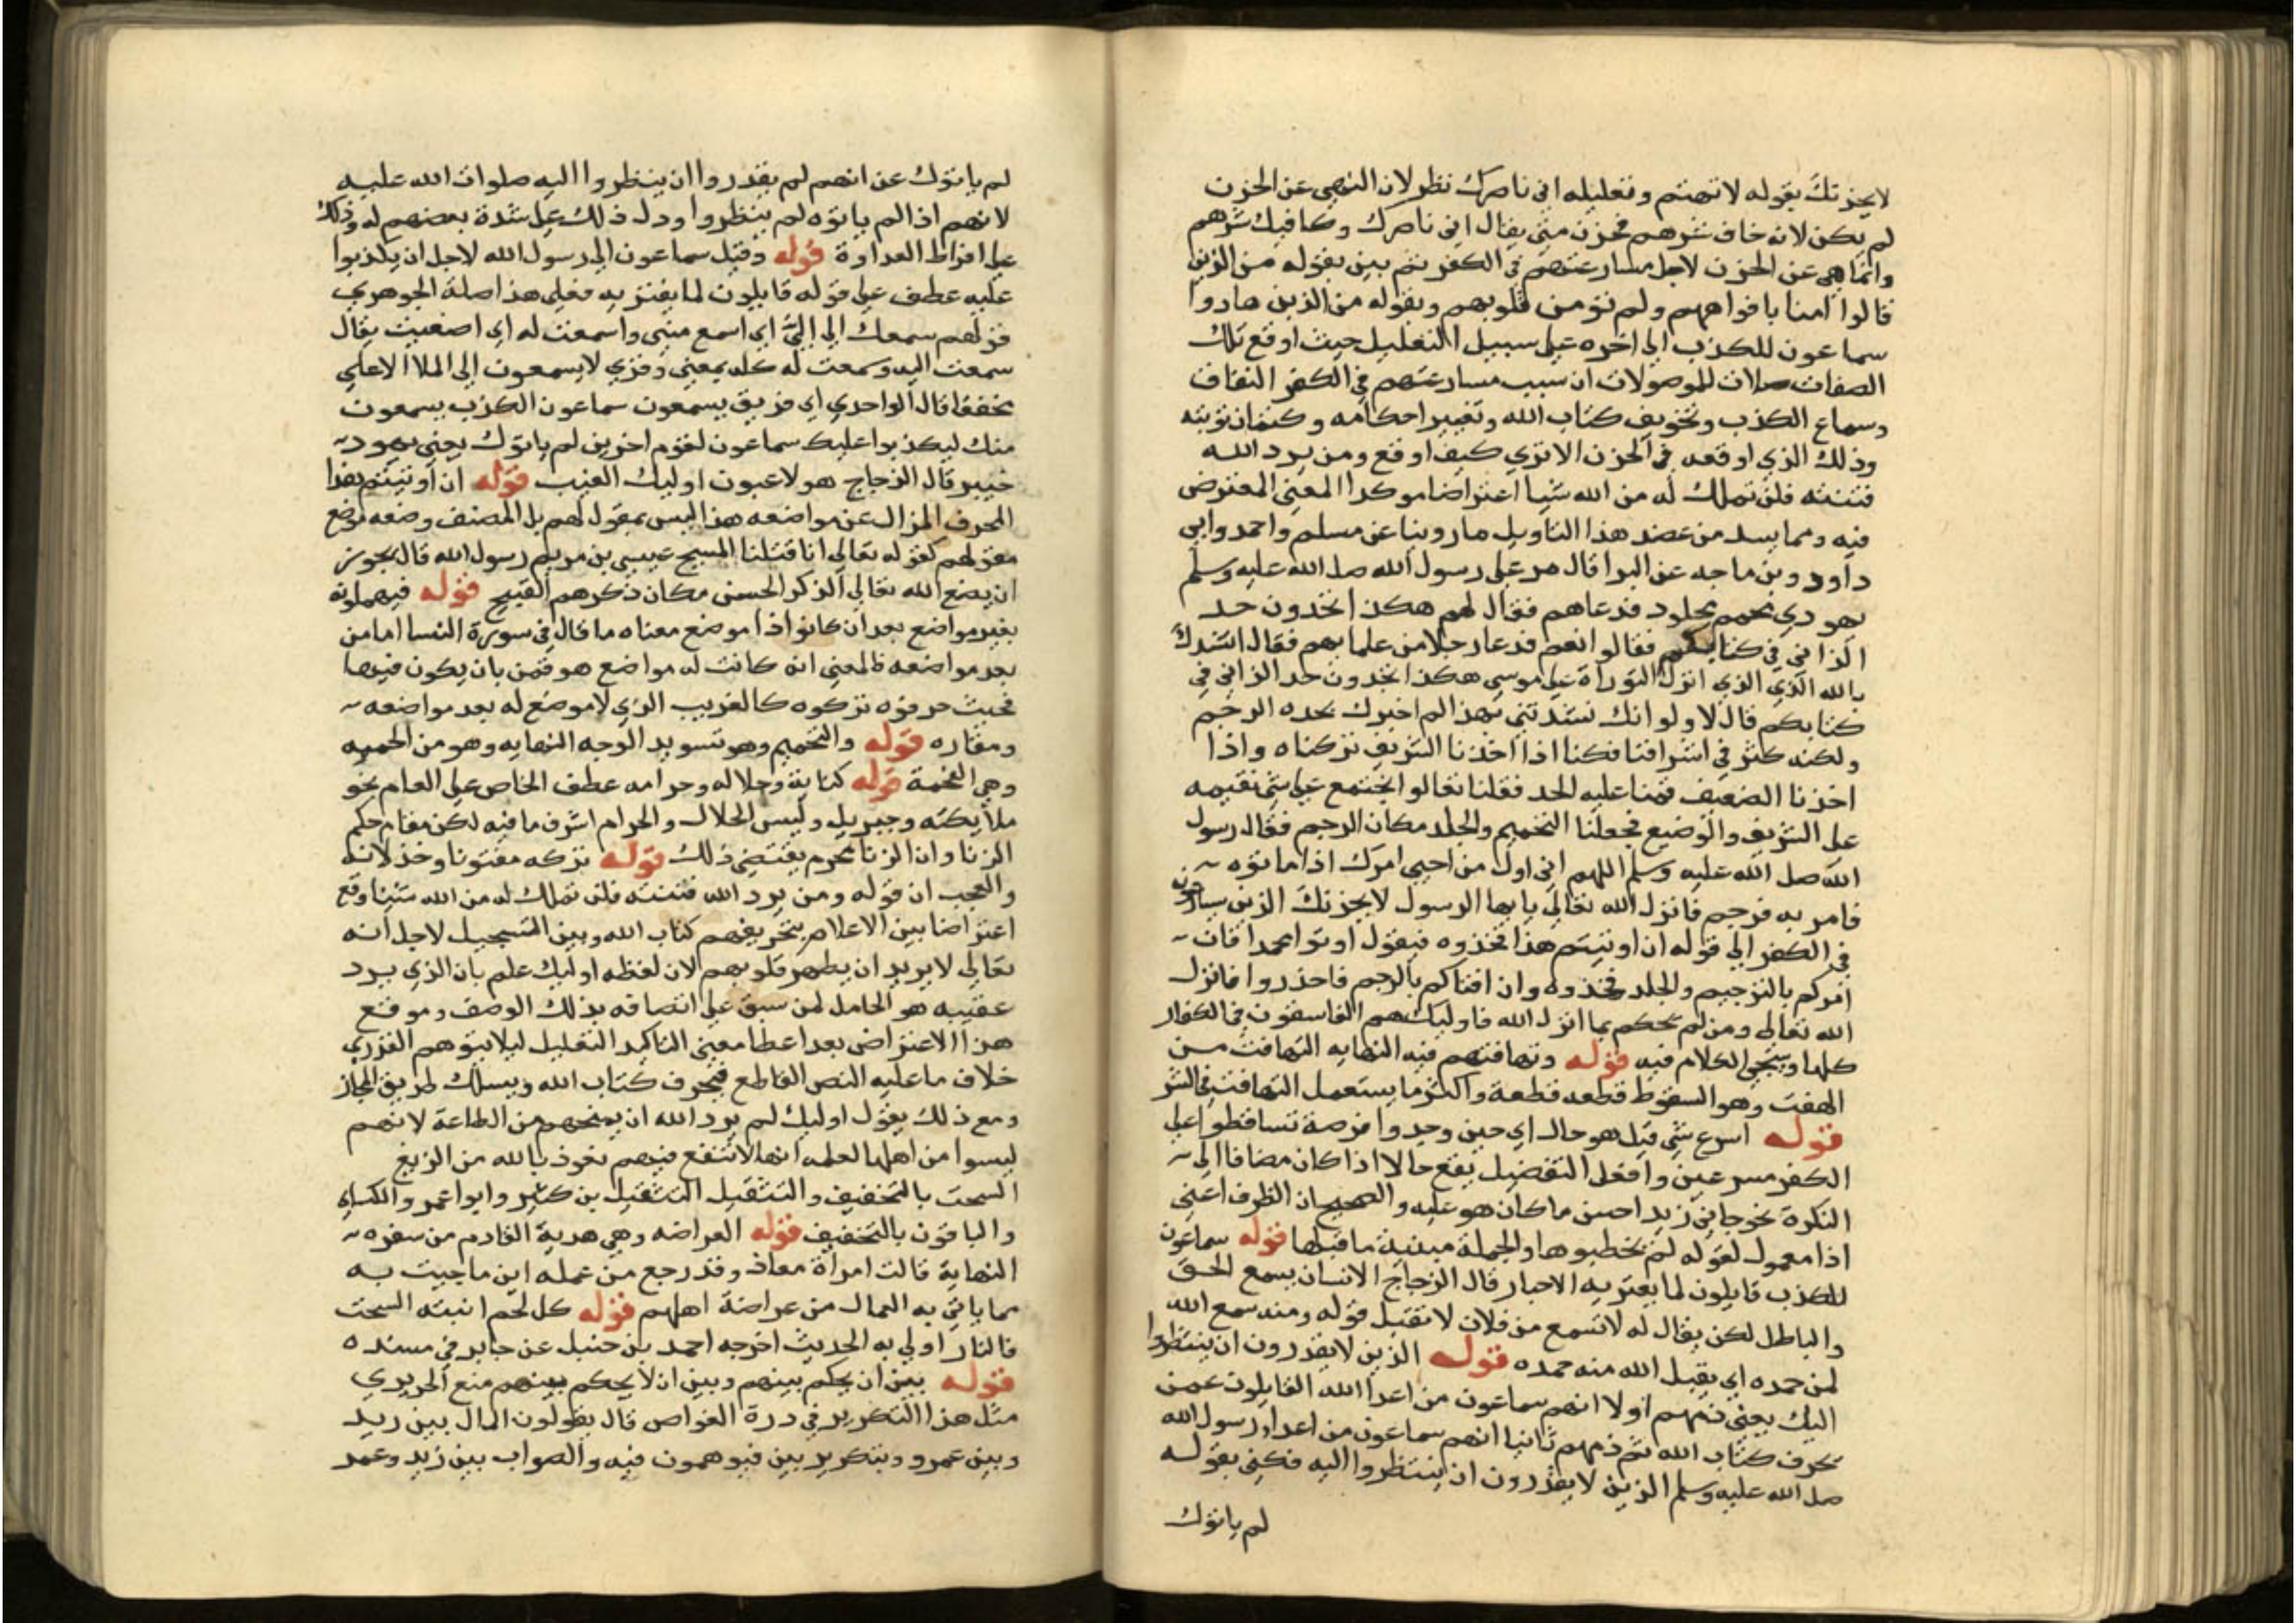 لا يحزنك بقوله لا تهتم وتعليله اني ناصرك نظر لان النهي عن الحزن
لم يكن لانه خاف شرهم فحزن حتى يقال اني ناصرك وكافيك شرهم
وانما نهي عن الحزن لاجل مسارعتهم في الكفر ثم بين بقوله من الذين
قالوا امنا بافواههم ولم تؤمن قلوبهم وبقوله من الذين هادوا
سماعون للكذب الى اخره على سبيل التعليل حيث اوقع تلك
الصفات صلات للموصولات ان سبب مسارعتهم في الكفر النفاق
وسماع الكذب وتحريف كتاب الله وتغيير احكامه وكتمان نوبته
وذلك الذي اوقعه في الحزن الا تري كيف اوقع ومن يرد الله
فتنته فلن تملك له من الله شيا اعتراضا موكدا المعني المعترض
فيه ومما يسد من عضد هذا التاويل ما روينا عن مسلم واحمد وابي
داود وبن ماجه عن البرا قال مر على رسول الله صلى الله عليه وسلم
يهودي محمم مجلود فدعاهم فقال لهم هكذا تجدون حد
الزاني في كتابكم فقالوا نعم فدعا رجلا من علمايهم فقال انشدك
بالله الذي الذي انزل التوراة على موسي هكذا تجدون حد الزاني في
كتابكم قال لا ولولا انك نشدتني بهذا لم اخبرك نجده الرجم
ولكنه كثر في اشرافنا فكنا اذا اخذنا الشريف تركناه واذا
اخذنا الضعيف قمنا عليه الحد فقلنا تعالوا نجتمع على شي نقيمه
على الشريف والوضيع فجعلنا التحميم والجلد مكان الرجم فقال رسول
الله صلى الله عليه وسلم اللهم اني اول من احيي امرك اذ اماتوه
فامر به فرجم فانزل الله تعالى يا ايها الرسول لا يحزنك الذين يسارعون
في الكفر الى قوله ان اوتيتم هذا فخذوه فيقول اوتوا محمدا فان
امركم بالترجيم والجلد فخذوه وان افتاكم بالرجم فاحذروا فانزل
الله تعالى ومن لم يحكم بما انزل الله فاوليك هم الفاسقون في الكفار
كلها وسيجي الكلام فيه قوله وتهافتهم فيه النهايه التهافت من
الهفت وهو السقوط قطعه قطعة واكثر ما يستعمل التهافت في الشر
قوله اسرع شي قيل هو حال اي حين وجدوا فرصة تساقطوا على
الكفر مسرعين وافعل التفضيل يقع حالا اذا كان مضافا الى
النكرة نحو جاني زيد احسن ما كان هو عليه والصحيح ان الظرف اعني
اذا معمول لقوله لم يخطيوها والجملة مبينة ما قبلها قوله سماعون
للكذب قايلون لما يفتريه الاحبار قال الزجاج الانسان يسمع الحق
والباطل لكن يقال له لا تسمع من فلان لا تقبل قوله ومنه سمع الله
لمن حمده اي يقبل الله منه حمده قوله الذين لا يقدرون ان ينظروا
اليك يعني ذمهم اولا انهم سماعون من اعدا الله القايلون عمن
يحرف كتاب الله ثم ذمهم ثانيا انهم سماعون من اعدا رسول الله
صلى الله عليه وسلم الذين لا يقدرون ان ينظروا اليه فكني بقوله
لم ياتوك
لم ياتوك عن انهم لم يقدروا ان ينظروا اليه صلوات الله عليه
لانهم اذا لم ياتوه لم ينظروا ودل ذلك على شدة بغضهم له وذلك
على افراط العداوة قوله وقيل سماعون الى رسول الله لاجل ان يكذبوا
عليه عطف على قوله قايلون لما يفتريه فعلى هذا صلة الجوهري
قولهم سمعك الي الي اي اسمع مني واسمعت له اي اصغيت يقال
سمعت اليه وسمعت له كله بمعني وقري لا يسمعون الى الملا الاعلي
مخففا قال الواحدي اي فريق يسمعون سماعون الكذب يسمعون
منك ليكذبوا عليك سماعون لقوم اخرين لم ياتوك يعني يهود
خيبر قال الزجاج هولا عيون اوليك الغيب قوله ان اوتيتم هذا
المحرف المزال عن مواضعه هذا ليس بمقول لهم بل المصنف وضعه موضع
مقولهم كقوله تعالى انا قتلنا المسيح عيسي بن مريم رسول الله قال يجوز
ان يضع الله تعالى الذكر الحسن مكان ذكرهم القبيح قوله فيهملونه
بغير مواضع بعد ان كانوا ذا موضع معناه ما قال في سورة النسا اما من
بعد مواضعه فالمعني انه كانت له مواضع هو قمن بان يكون فيها
فحيث حرفوه تركوه كالغريب الذي لا موضع له بعد مواضعه
ومقاره قوله والتحميم وهو تسويد الوجه النهايه وهو من الحمية
وهي الفحمة قوله كتابة وحلاله وحرامه عطف الخاص على العام نحو
ملايكته وجبريل وليس الحلال والحرام اشرف ما فيه لكن مقام حكم
الزنا وان الزنا محرم يقتضي ذلك قوله تركه مفتونا وخذلانه
والعجب ان قوله ومن يرد الله فتنته فلن تملك له من الله شيئا وقع
اعتراضا بين الاعلام بتحريفهم كتاب الله وبين التسجيل لاجل انه
تعالى لا يريد ان يطهر قلوبهم لان لفظه اوليك علم بان الذي يرد
عقيبه هو الحامل لمن سبق على اتصافه بذلك الوصف وموقع
هذا الاعتراض بعد اعطا معني التاكيد التعليل ليلا يتوهم القدري
خلاف ما عليه النص القاطع فيحرف كتاب الله ويسلك طريق المجاز
ومع ذلك يقول اوليك لم يرد الله ان يمنحهم من الطاعة لانهم
ليسوا من اهلها لعلمه انها لا تنفع فيهم نعوذ بالله من الزيغ
السحت بالتخفيف والتثقيل التثقيل بن كثير وابو عمر والكساي
والباقون بالتخفيف قوله العراضه وهي هدية القادم من سفره
النهاية قالت امراة معاذ وقد رجع من عمله اين ما جيت به
مما ياتي به العمال من عراضة اهلهم قوله كل لحم انبته السحت
فالنار اولي به الحديث اخرجه احمد بن حنبل عن جابر في مسنده
قوله بين ان يحكم بينهم وبين ان لا يحكم بينهم منع الحريري
مثل هذا التكرير في درة الغواص قال يقولون المال بين زيد
وبين عمرو وبتكرير بين فيوهمون فيه والصواب بين زيد وعمر